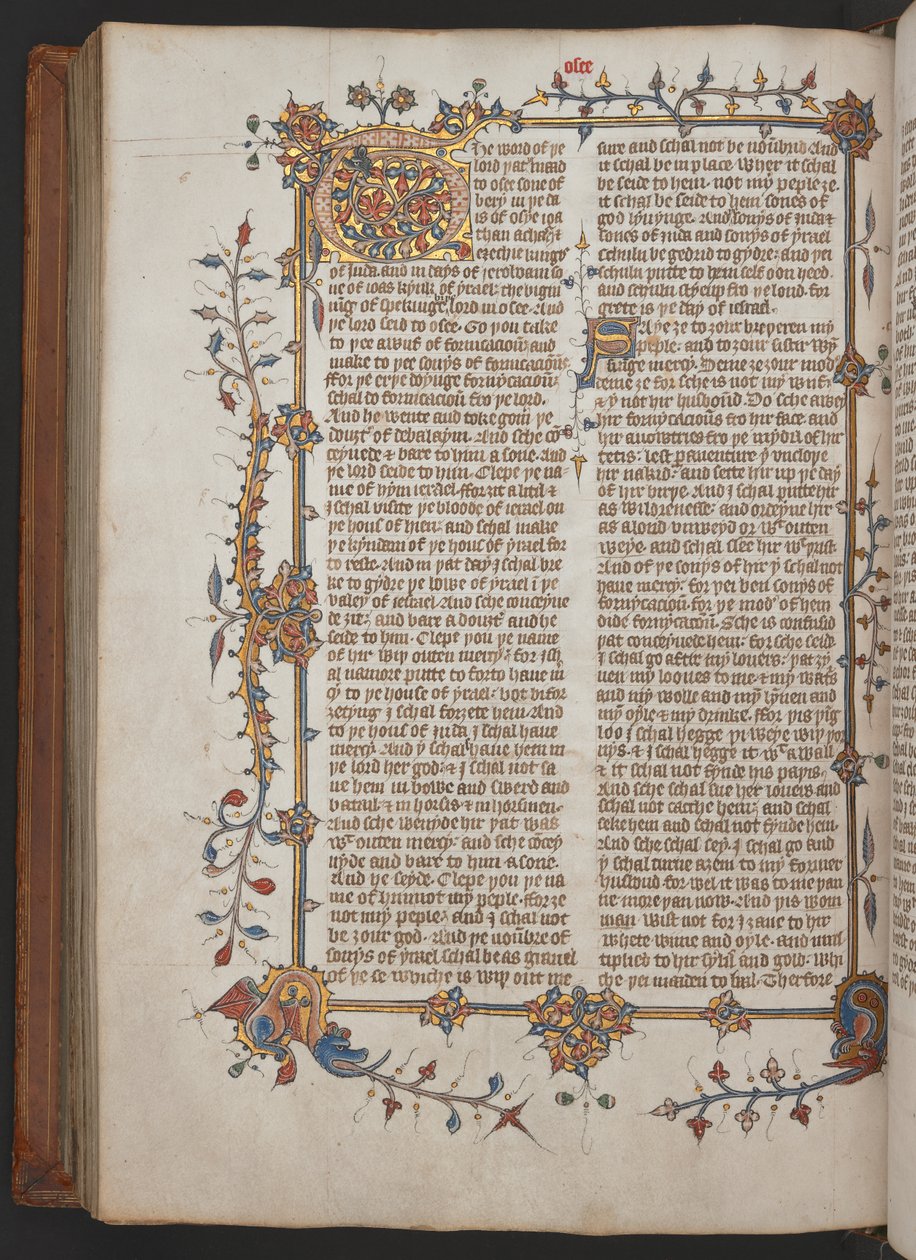 osee
The word of ye
lord yat maad
to osee sone of
bery in ye da
is of osye ioa
than achaz &
ezechie kings
of Juda. and in days of ieroboam so
ne of ioas kyng of yrael: the bigin
of spekinge lord in osee. And
ye lord seid to osee. Go you take
to yee a wyif of fornicacioun and
make to yee sonys of fornicacioun
ffor ye erye doynge fornycacioun:
schal do fornicacioun fro ye lord.
And he wente and toke gom ye
douzt of debalaym. And sche co
ceyuede & bare to him a sone. And
ye lord seide to him. Clepe ye na
me of hym ierael. ffor zit a litil &
I schal visite ye bloode of ierael on
ye hous of hieu: and schal make
ye kyndam of ye hous of yrael for
to reste. And in yat day I schal bre
ke to gydre ye bowe of yrael i ye
valey of iesrael. And sche conceyue
de zit: and bare a douzt and he
seide to him. Clepe you ye name
of hir wiy outen mercy: for I sch
al namore putte to forto haue m
cy to ye house of yrael. bot bi for
zetyng I schal forzete hem. And
to ye hous of Juda I schal haue
mercy. And y schal haue hem in
ye lord her god: & I schal not sa
ue hem in bowe and swerd and
bataul & in horsis & in horsmen.
And sche wenyde hir yat was
wt outen mercy: and sche cocey
uyde and bare to him a sone.
And he seyde. Clepe you ye na
me of him not my peple. ffor ze
not my peple: and I schal not
be zour god. And ye noubre of
sonys of yrael schal be as grauel
of ye se whiche is wiy out me
sure and schal not be noubrid. And
it schal be in place wher it schal
be seide to hem. not my peple ze.
it schal be seide to hem sones of
god lyuynge. And sonys of iuda &
sones of iuda and sonys of yrael
schuln be gedrid to gydre: and yei
schuln putte to hem self oon heed.
and schuln styeup fro ye lond. for
grete is ye day of iesrael.
Saye ze to zour breyeren my
peple. and to zour sister wy
tinge mercy. Deme ze zour mod
deme ze for sche is not my wyif.
& y not hir husbond. Do sche awey
hir fornycacions fro hir face. and
hir auowtries fro ye myddil of hir
tetis: lest pauenture y vncloye
hir nakid: and sette hir up ye day
of hir birye. And I schal putte hir
as wildrenesse. and ordeyne hir
as a lond vnweyd or wt outen
weye. and schal slee hir wt yrist.
And of ye sonys of hir y schal not
haue mercy: for yei ben sonys of
fornycacioun. for ye mod of hem
dide fornycacoun. Sche is confusid
yat conceyuede hem: for sche seid.
I schal go aftir my louers. yat zy
uen my looues to me. & my wats
and my wolle and my lynen and
my oyle & my drinke. ffor yis yig
loo I schal hegge yi weye wiy yor
nys. & I schal hegge it wt a wall
& it schal not fynde his payis.
And sche schal sue her louers and
schal not catche hem: and schal
seke hem and schal not fynde hem.
And sche schal sey. I schal go and
y schal turne azem to my former
husbond for wel it was to me yan
ne more yan now. And yis wom
man wist not for I zaue to hir
whete wine and oyle. and mul
tiplied to hir sylf and gold: whi
che yei maden to bal. Therfore